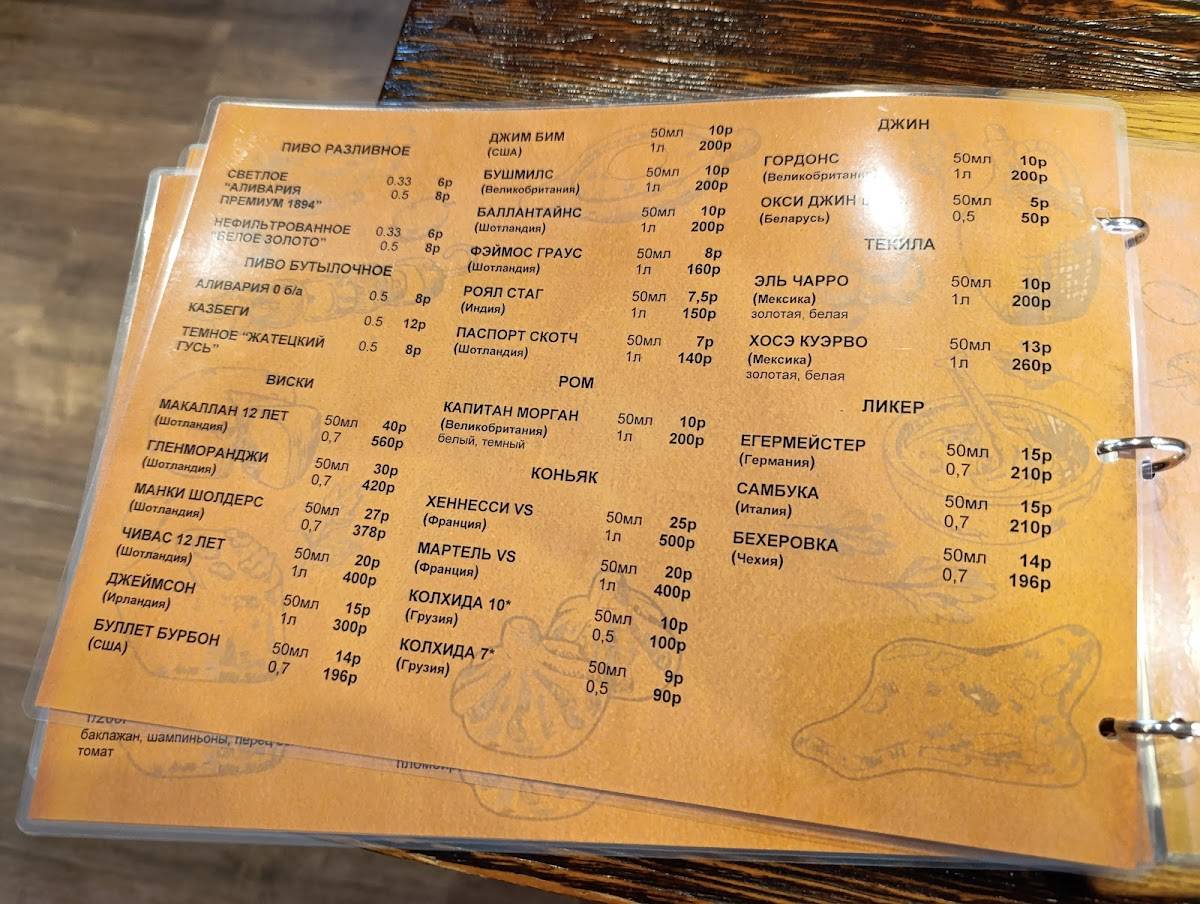 ПИВО РАЗЛИВНОЕ
СВЕТЛОЕ 0.33 6р
"АЛИВАРИЯ 0.5 8р
ПРЕМИУМ 1894"
НЕФИЛЬТРОВАННОЕ 0.33 6р
"БЕЛОЕ ЗОЛОТО" 0.5 8р
ПИВО БУТЫЛОЧНОЕ
АЛИВАРИЯ 0 б/а 0.5 8р
КАЗБЕГИ 0.5 12р
ТЕМНОЕ "ЖАТЕЦКИЙ 0.5 8р
ГУСЬ"
ВИСКИ
МАКАЛЛАН 12 ЛЕТ 50мл 40р
(Шотландия) 0,7 560р
ГЛЕНМОРАНДЖИ 50мл 30р
(Шотландия) 0,7 420р
МАНКИ ШОЛДЕРС 50мл 27р
(Шотландия) 0,7 378р
ЧИВАС 12 ЛЕТ 50мл 20р
(Шотландия) 1л 400р
ДЖЕЙМСОН 50мл 15р
(Ирландия) 1л 300р
БУЛЛЕТ БУРБОН 50мл 14р
(США) 0,7 196р
ДЖИМ БИМ 50мл 10р
(США) 1л 200р
БУШМИЛС 50мл 10р
(Великобритания) 1л 200р
БАЛЛАНТАЙНС 50мл 10р
(Шотландия) 1л 200р
ФЭЙМОС ГРАУС 50мл 8р
(Шотландия) 1л 160р
РОЯЛ СТАГ 50мл 7,5р
(Индия) 1л 150р
ПАСПОРТ СКОТЧ 50мл 7р
(Шотландия) 1л 140р
РОМ
КАПИТАН МОРГАН 50мл 10р
(Великобритания) 1л 200р
белый, темный
КОНЬЯК
ХЕННЕССИ VS 50мл 25р
(Франция) 1л 500р
МАРТЕЛЬ VS 50мл 20р
(Франция) 1л 400р
КОЛХИДА 10* 50мл 10р
(Грузия) 0,5 100р
КОЛХИДА 7* 50мл 9р
(Грузия) 0,5 90р
ДЖИН
ГОРДОНС 50мл 10р
(Великобритания 1л 200р
ОКСИ ДЖИН 50мл 5р
(Беларусь) 0,5 50р
ТЕКИЛА
ЭЛЬ ЧАРРО 50мл 10р
(Мексика) 1л 200р
золотая, белая
ХОСЭ КУЭРВО 50мл 13р
(Мексика) 1л 260р
золотая, белая
ЛИКЕР
ЕГЕРМЕЙСТЕР 50мл 15р
(Германия) 0,7 210р
САМБУКА 50мл 15р
(Италия) 0,7 210р
БЕХЕРОВКА 50мл 14р
(Чехия) 0,7 196р
баклажан, шампиньоны, перец
томат